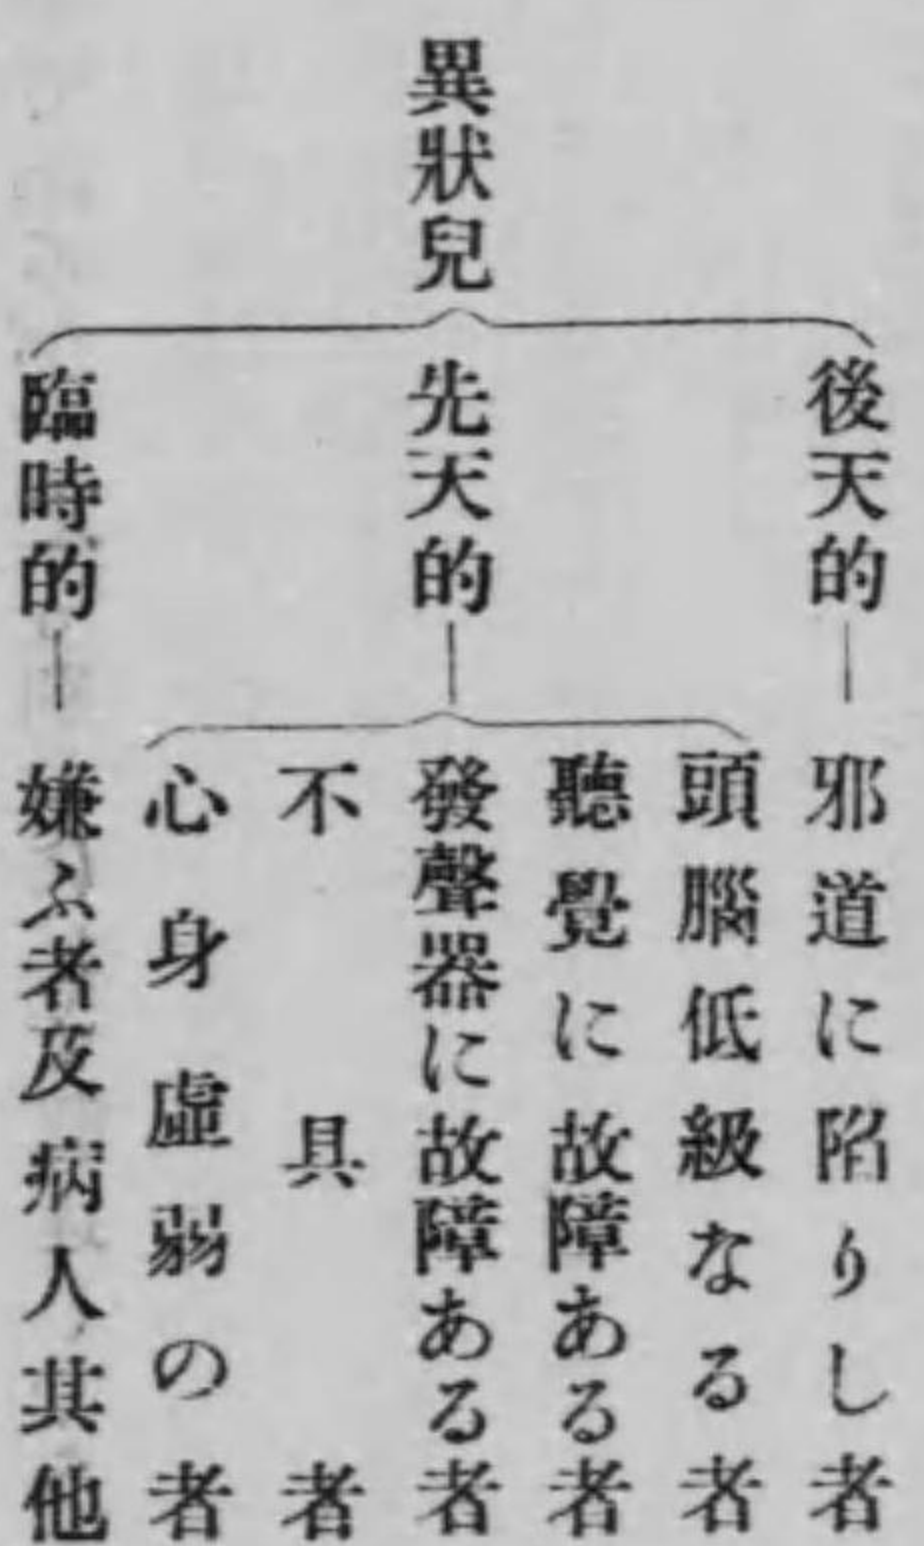 異狀兒
後天的
邪道に陷りし者
先天的
頭腦低級なる者
聽覺に故障ある者
發聲器に故障ある者
不具者
心身虛弱の者
臨時的
嫌ふ者及病人其他